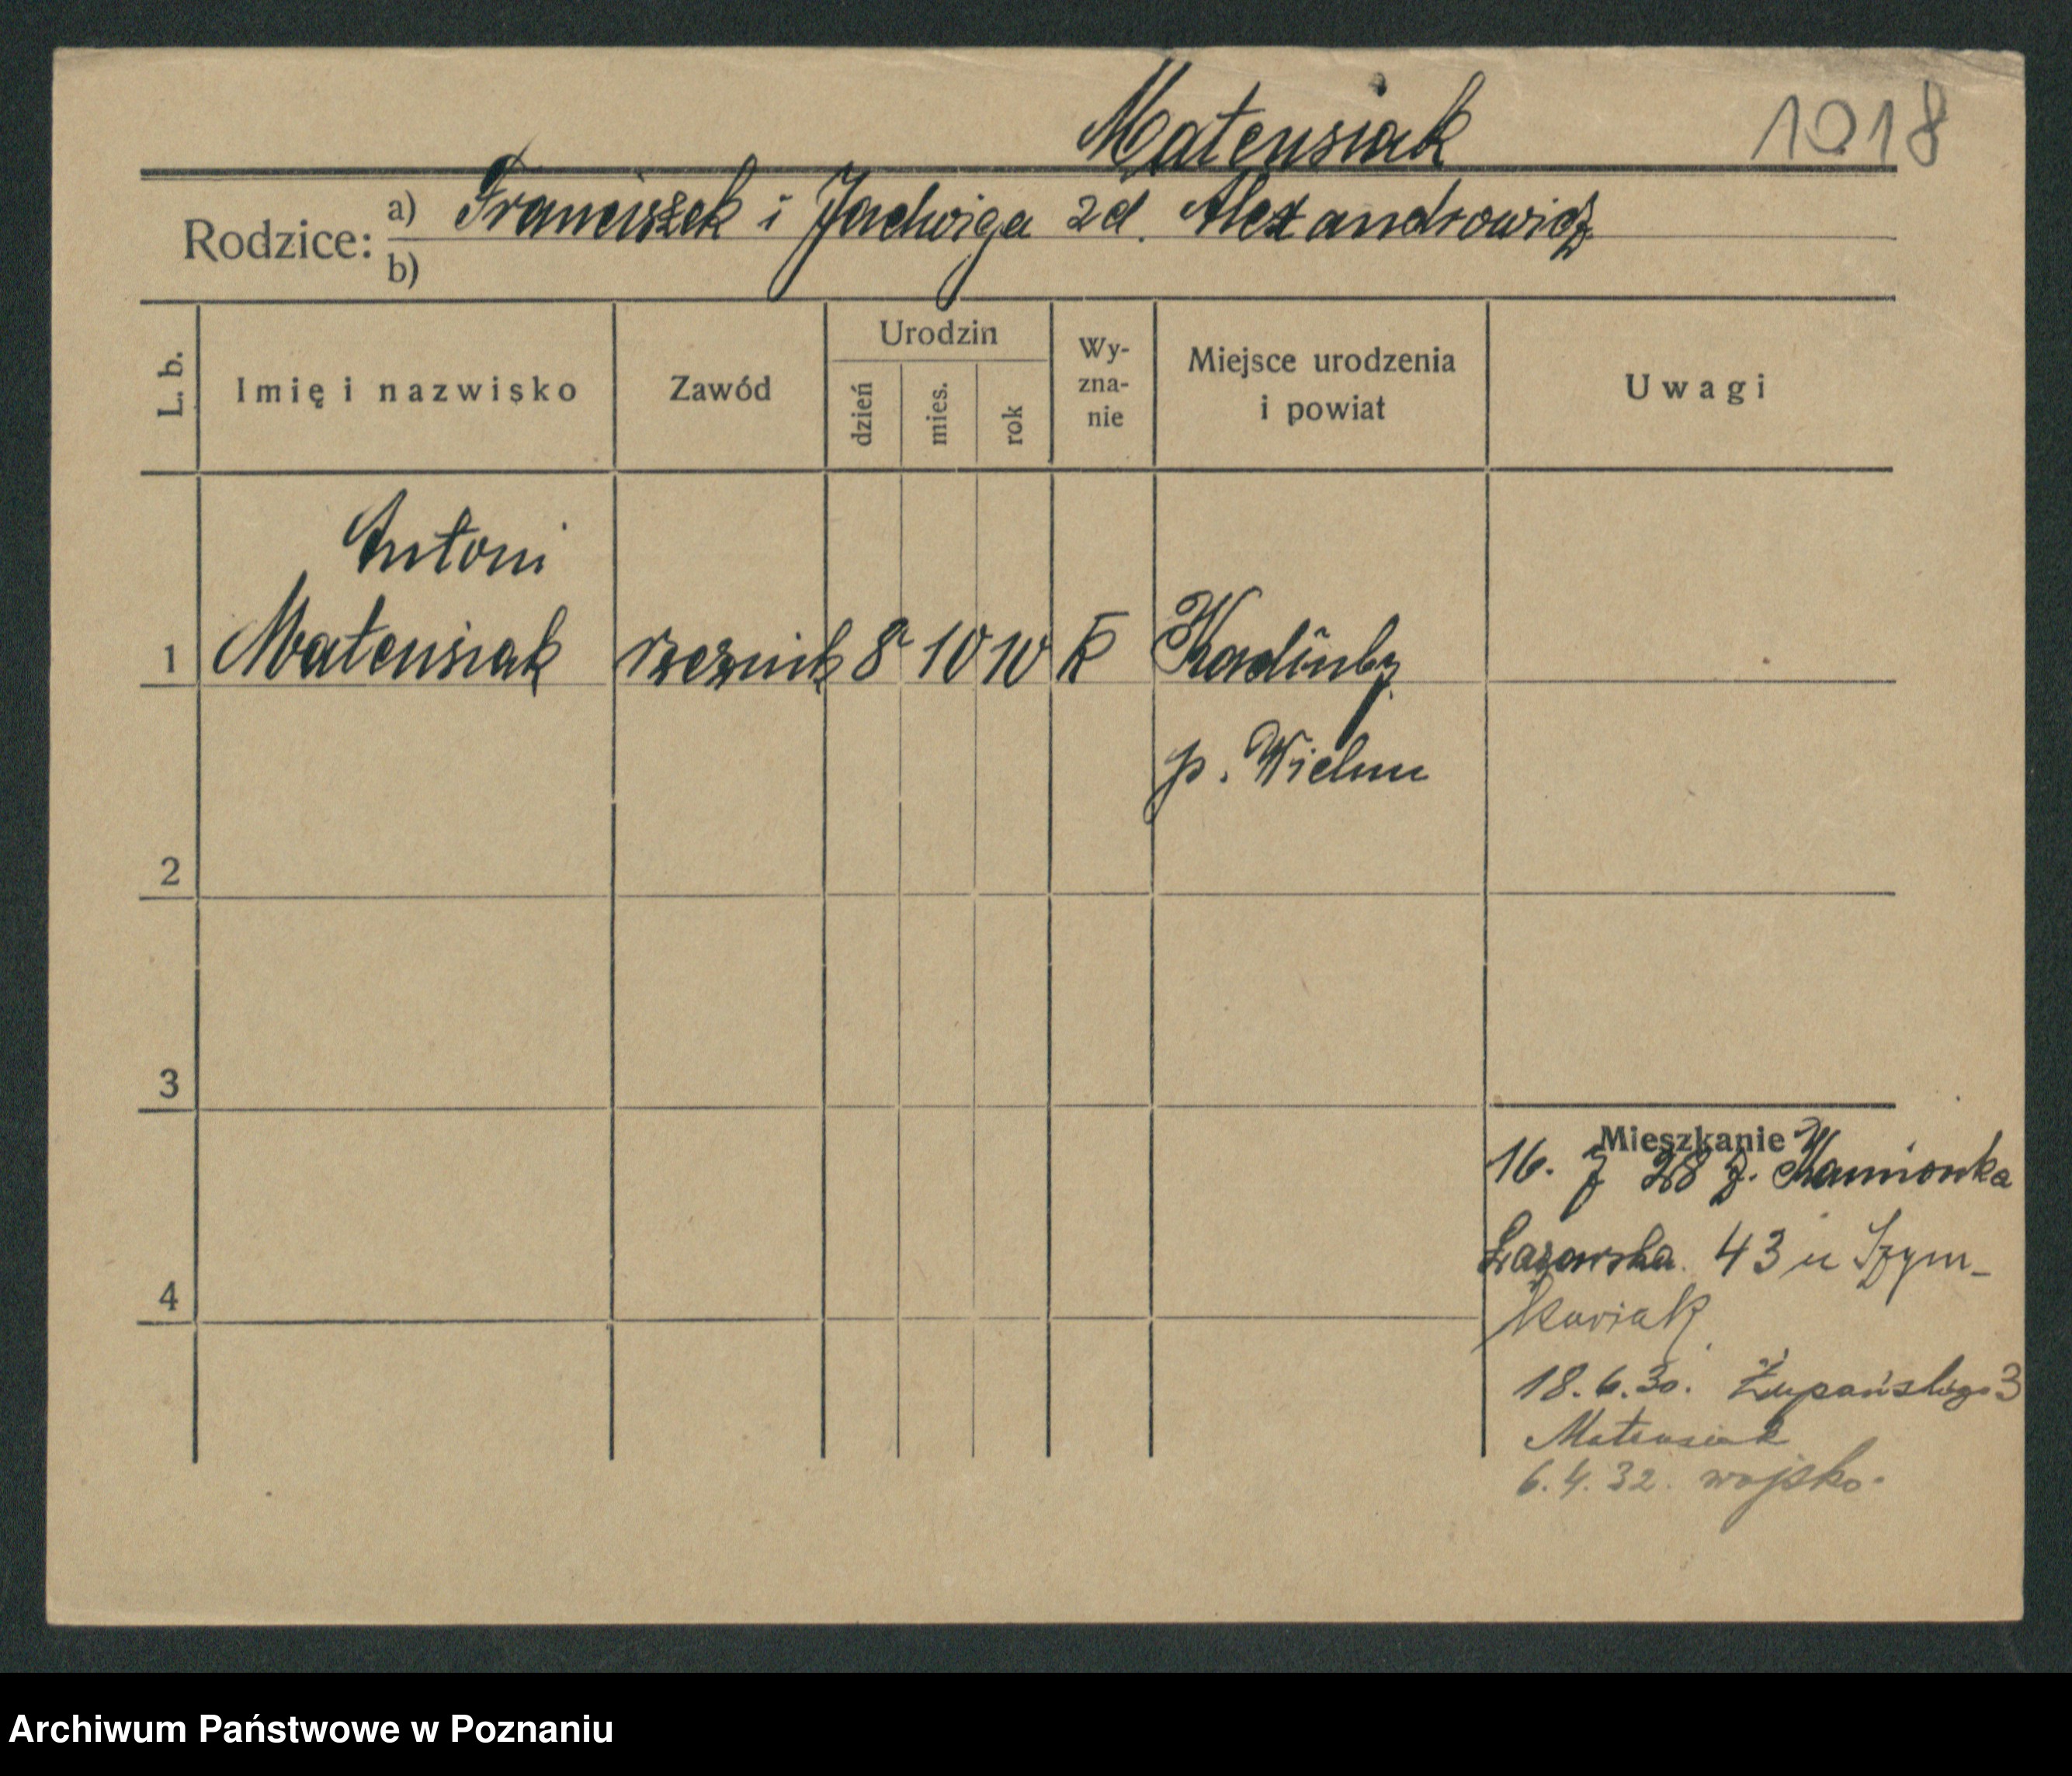 Mateusiak
1018
Rodzice:
a) Franciszek i Jadwiga zd. Alexandrowicz
b)
L. b.
Imię i nazwisko
Zawód
Urodzin
dzień
mies.
rok
Wy-
zna-
nie
Miejsce urodzenia
i powiat
Uwagi
Antoni
1 Mateusiak rzeźnik 8 10 10 K Kadłuby
p. Wieluń
2
3
4
Mieszkanie
16. 28 z. Kamionka
Łazarska 43 u Szym-
kowiak
18.6.30. Żupańskiego 3
Mateusiak
6.4.32. wojsko.
Archiwum Państwowe w Poznaniu